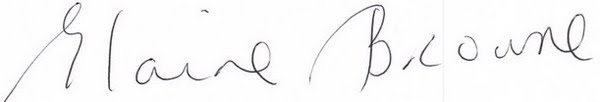 Elaine Browne